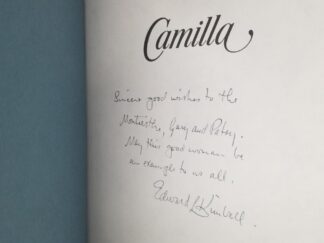 Camilla
Sincere good wishes to the
Gary and Patsy.
May this good woman be
an example to us all.
Edward L Kimball